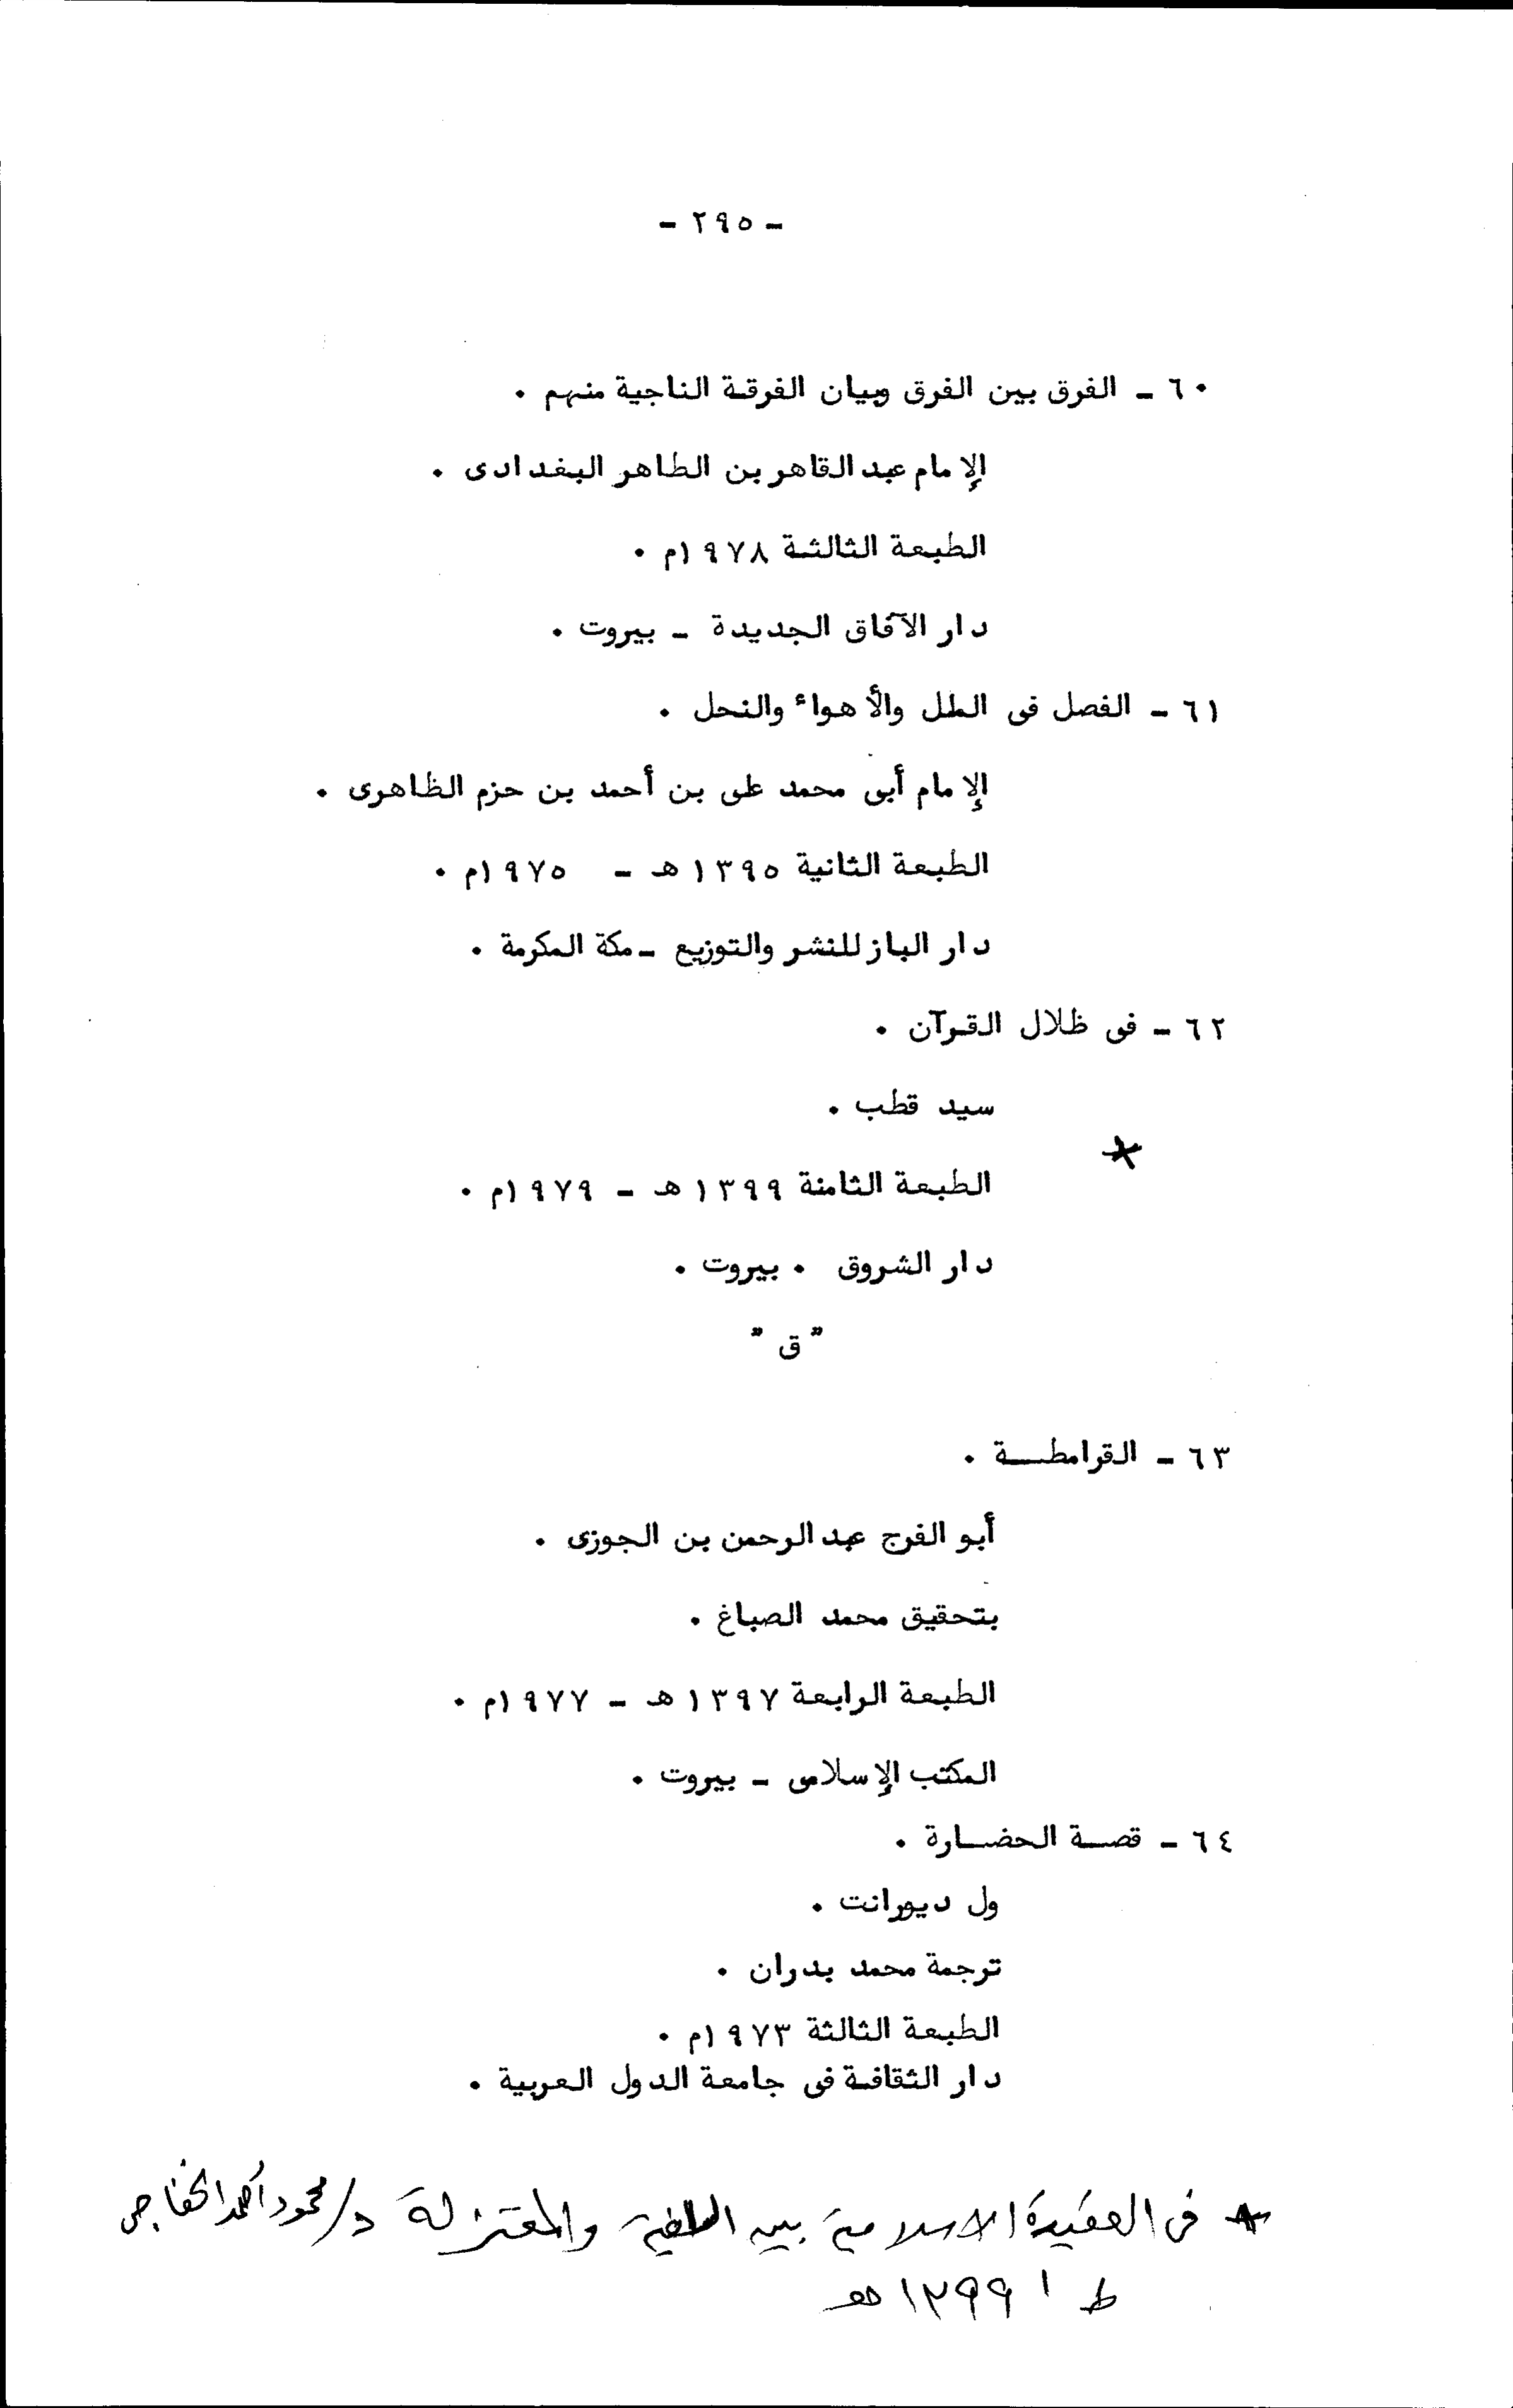 - ٢٩٥ -
٦٠ - الفرق بين الفرق وبيان الفرقة الناجية منهم .
الإمام عبد القاهر بن الطاهر البغدادى .
الطبعة الثالثة ١٩٧٨م .
دار الآفاق الجديدة - بيروت .
٦١ - الفصل فى الملل والأهواء والنحل .
الإمام أبى محمد على بن أحمد بن حزم الظاهرى .
الطبعة الثانية ١٣٩٥ هـ - ١٩٧٥م .
دار الباز للنشر والتوزيع - مكة المكرمة .
٦٢ - فى ظلال القرآن .
سيد قطب .
*
الطبعة الثامنة ١٣٩٩ هـ - ١٩٧٩م .
دار الشروق . بيروت .
" ق "
٦٣ - القرامطـــة .
أبو الفرج عبد الرحمن بن الجوزى .
بتحقيق محمد الصباغ .
الطبعة الرابعة ١٣٩٧ هـ - ١٩٧٧م .
المكتب الإسلامى - بيروت .
٦٤ - قصــة الحضــارة .
ول ديورانت .
ترجمة محمد بدران .
الطبعة الثالثة ١٩٧٣م .
دار الثقافة فى جامعة الدول العربية .
* فى العقيدة الاسلامية بين السلفية والمعتزلة د/ محمود أحمد الخفاجى
ط ١ ١٣٩٩ هـ